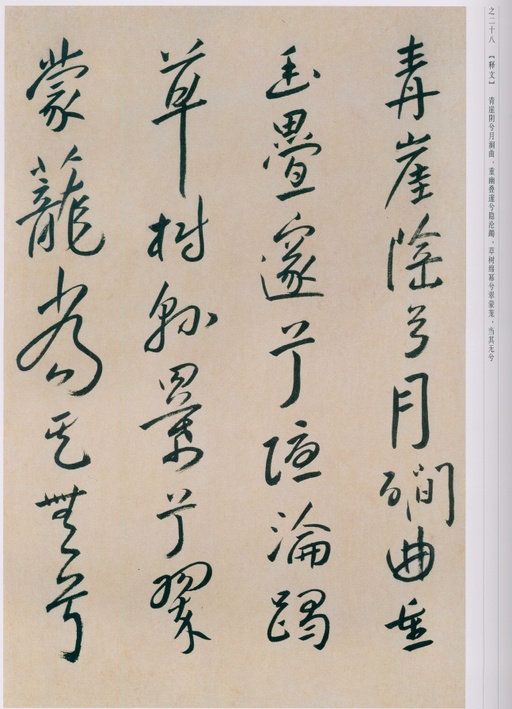 之二十八 【释文】 青崖阴兮月涧曲，重幽叠邃兮隐沦躅，草树绵幂兮翠蒙茏，当其无兮
青崖陰兮月磵曲重
幽疊邃兮隱淪躅
草樹綿羃兮翠
蒙蘢當其無兮